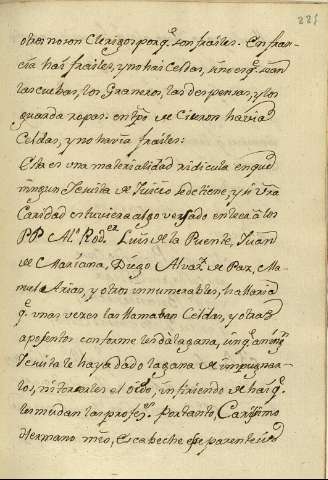 221
otros no son Clerigos porq.e son frailes. En fran-
cia hai frailes, y no hai Celdas, sino es q.e sean
las cubas, los Graneros, las despensas, y los
guarda ropas. en tpo de Ciceron havia
Celdas, y no havia frailes:
Esta es una materialidad ridicula en que
ningun Jesuita de Juicio se detiene, y si Vra
Caridad estuviera algo versado en leer à los
PP Al.o Rod.ez Luis de la Puente, Juan
de Mariana, Diego Alvar.z de Paz, Ma-
nuel Arias, y otros innumerables, hallaria
q.e unas vezes las llamaban Celdas, y otras
aposentos conforme les da la gana, sin q.e à ning.n
Jesuita le haya dado la gana de impugnar-
los, ni torserles el oido, infiriendo de hai q.e
les mudan las profes.s Por tanto, Carissimo
Hermano mio, escabeche esse parentesis